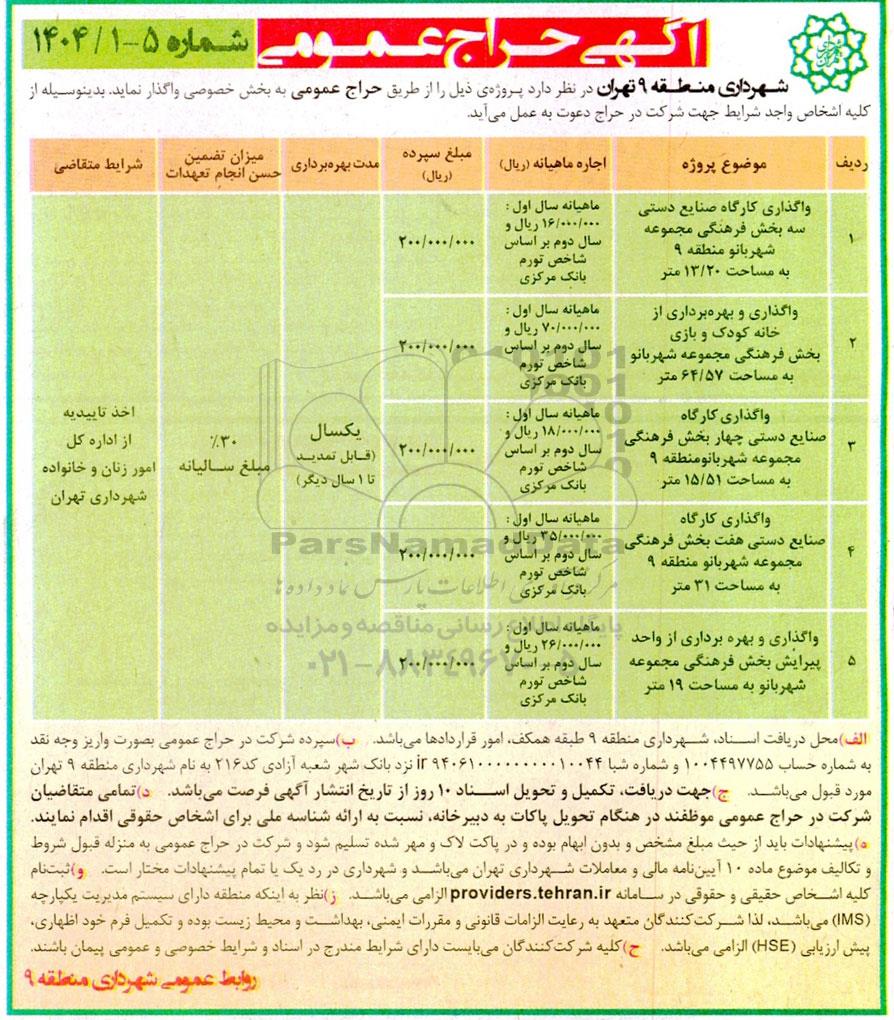 آگهی حراج عمومی
شماره ۵-۱/۱۴۰۴
شهرداری منطقه ۹ تهران در نظر دارد پروژه‌ی ذیل را از طریق حراج عمومی به بخش خصوصی واگذار نماید. بدینوسیله از
کلیه اشخاص واجد شرایط جهت شرکت در حراج دعوت به عمل می‌آید.
ردیف
موضوع پروژه
اجاره ماهیانه (ریال)
مبلغ سپرده
(ریال)
مدت بهره‌برداری
میزان تضمین
حسن انجام تعهدات
شرایط متقاضی
۱
واگذاری کارگاه صنایع دستی
سه بخش فرهنگی مجموعه
شهربانو منطقه ۹
به مساحت ۱۳/۲۰ متر
ماهیانه سال اول :
۱۶/۰۰۰/۰۰۰ ریال و
سال دوم بر اساس
شاخص تورم
بانک مرکزی
۲۰۰/۰۰۰/۰۰۰
۲
واگذاری و بهره‌برداری از
خانه کودک و بازی
بخش فرهنگی مجموعه شهربانو
به مساحت ۶۴/۵۷ متر
ماهیانه سال اول :
۷۰/۰۰۰/۰۰۰ ریال و
سال دوم بر اساس
شاخص تورم
بانک مرکزی
۲۰۰/۰۰۰/۰۰۰
۳
واگذاری کارگاه
صنایع دستی چهار بخش فرهنگی
مجموعه شهربانومنطقه ۹
به مساحت ۱۵/۵۱ متر
ماهیانه سال اول :
۱۸/۰۰۰/۰۰۰ ریال و
سال دوم بر اساس
شاخص تورم
بانک مرکزی
۲۰۰/۰۰۰/۰۰۰
۴
واگذاری کارگاه
صنایع دستی هفت بخش فرهنگی
مجموعه شهربانو منطقه ۹
به مساحت ۳۱ متر
ماهیانه سال اول :
۳۵/۰۰۰/۰۰۰ ریال و
سال دوم بر اساس
شاخص تورم
بانک مرکزی
۲۰۰/۰۰۰/۰۰۰
۵
واگذاری و بهره برداری از واحد
پیرایش بخش فرهنگی مجموعه
شهربانو به مساحت ۱۹ متر
ماهیانه سال اول :
۲۶/۰۰۰/۰۰۰ ریال و
سال دوم بر اساس
شاخص تورم
بانک مرکزی
۲۰۰/۰۰۰/۰۰۰
یکسال
(قابل تمدید
تا ۱ سال دیگر)
۳۰٪
مبلغ سالیانه
اخذ تاییدیه
از اداره کل
امور زنان و خانواده
شهرداری تهران
ParsNamadData
پایگاه اطلاع رسانی مناقصه و مزایده
الف)محل دریافت اسناد، شهرداری منطقه ۹ طبقه همکف، امور قراردادها می‌باشد. ب)سپرده شرکت در حراج عمومی بصورت واریز وجه نقد
به شماره حساب ۱۰۰۴۴۹۷۷۵۵ و شماره شبا ir ۹۴۰۶۱۰۰۰۰۰۰۰۰۰۱۰۰۴۴ نزد بانک شهر شعبه آزادی کد۲۱۶ به نام شهرداری منطقه ۹ تهران
مورد قبول می‌باشد. ج)جهت دریافت، تکمیل و تحویل اسناد ۱۰ روز از تاریخ انتشار آگهی فرصت می‌باشد. د)تمامی متقاضیان
شرکت در حراج عمومی موظفند در هنگام تحویل پاکات به دبیرخانه، نسبت به ارائه شناسه ملی برای اشخاص حقوقی اقدام نمایند.
ه)پیشنهادات باید از حیث مبلغ مشخص و بدون ابهام بوده و در پاکت لاک و مهر شده تسلیم شود و شرکت در حراج عمومی به منزله قبول شروط
و تکالیف موضوع ماده ۱۰ آیین‌نامه مالی و معاملات شهرداری تهران می‌باشد و شهرداری در رد یک یا تمام پیشنهادات مختار است. و)ثبت‌نام
کلیه اشخاص حقیقی و حقوقی در سامانه providers.tehran.ir الزامی می‌باشد. ز)نظر به اینکه منطقه دارای سیستم مدیریت یکپارچه
(IMS) می‌باشد، لذا شرکت‌کنندگان متعهد به رعایت الزامات قانونی و مقررات ایمنی، بهداشت و محیط زیست بوده و تکمیل فرم خود اظهاری،
پیش ارزیابی (HSE) الزامی می‌باشد. ح)کلیه شرکت‌کنندگان می‌بایست دارای شرایط مندرج در اسناد و شرایط خصوصی و عمومی پیمان باشند.
روابط عمومی شهرداری منطقه ۹